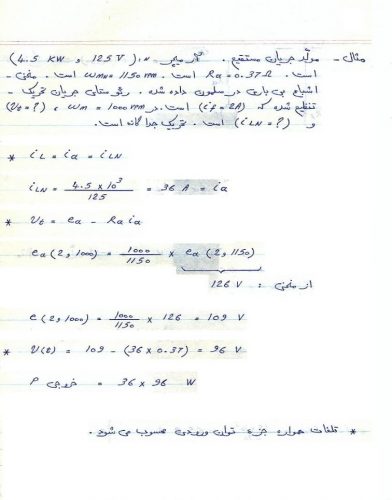 مثال - مولّد جریان مستقیم . آرمیچر IN ، (4.5 KW , 125 V)
است . Wmn = 1150 rpm است . Ra = 0.37 Ω است . منحنی -
اشباع بی باری در سلمون داده شده . رئوستای جریان تحریک -
تنظیم شده که (if = 2A) است. در Wm = 1000 rpm ، (Vt = ?)
و (iLN = ?) است . تحریک جداگانه است .
* iL = ia = iLN
iLN = 4.5 × 10³ / 125 = 36 A = ia
* Vt = ea - Ra ia
ea (2, 1000) = 1000 / 1150 × ea (2, 1150)
از منحنی : 126 V
e (2, 1000) = 1000 / 1150 × 126 = 109 V
* V(t) = 109 - (36 × 0.37) = 96 V
P خروجی = 36 × 96 W
* تلفات همواره جزء توان ورودی محسوب می شود .